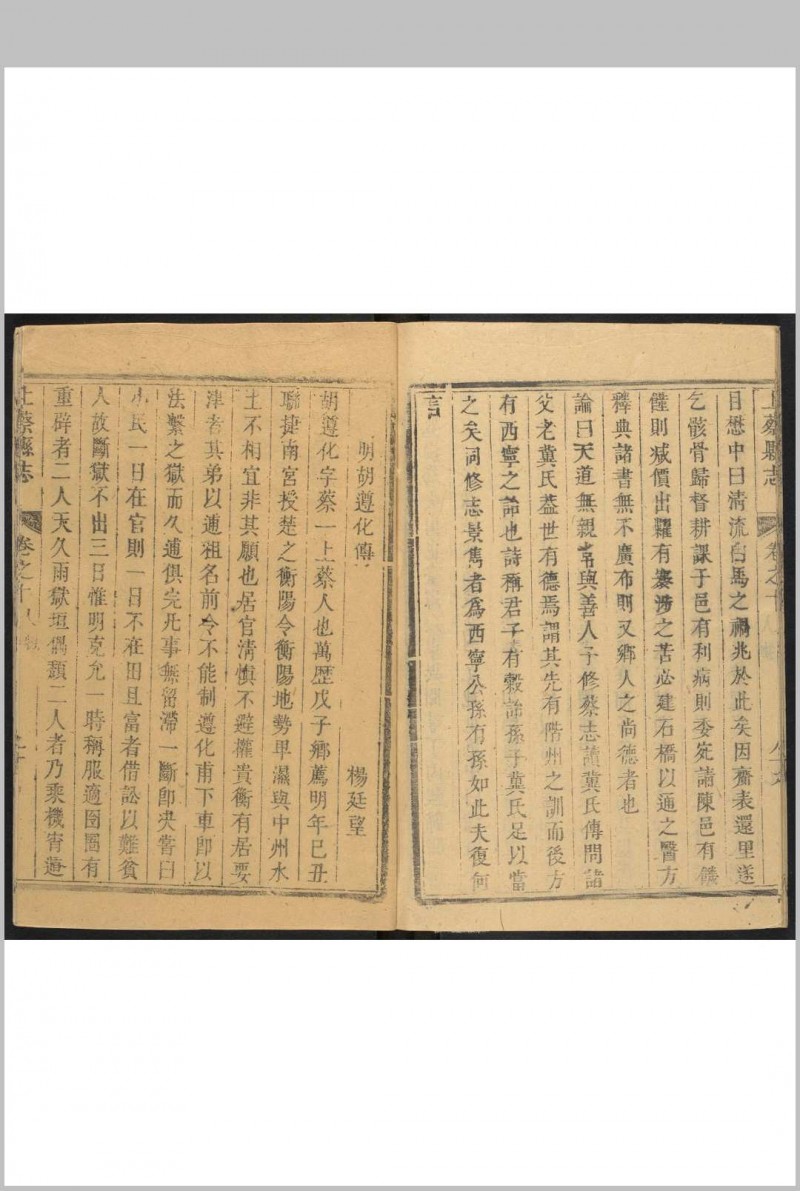 上蔡縣志
卷之十
目懋中曰清流白馬之禍兆於此矣因齎表還里遂
乞骸骨歸督耕課子邑有利病則委宛請陳邑有饑
饉則減價出糶有褰涉之苦必建石橋以通之醫方
釋典諸書無不廣布則又鄉人之尚德者也
論曰天道無親常與善人予修蔡志讀冀氏傳問諸
父老冀氏葢世有德焉謂其先有階州之訓而後方
有西寧之諭也詩稱君子有穀詒孫子冀氏足以當
之矣同修志景雋者爲西寧公孫有孫如此夫復何
言
明胡遵化傳
楊廷望
胡遵化字蔡一上蔡人也萬歷戊子鄉薦明年巳丑
聯捷南宮授楚之衡陽令衡陽地勢卑濕與中州水
土不相宜非其願也居官清慎不避權貴衡有居要
津者其弟以逋租名前令不能制遵化甫下車卽以
法繫之獄而久逋俱完凡事無留滯一斷卽夬嘗曰
小民一日在官則一日不在田且富者借訟以難貧
人故斷獄不出三日惟明克允一時稱服適囹圄有
重辟者二人天久雨獄垣偶頹二人者乃乘機宵遁
上蔡縣志
卷之十